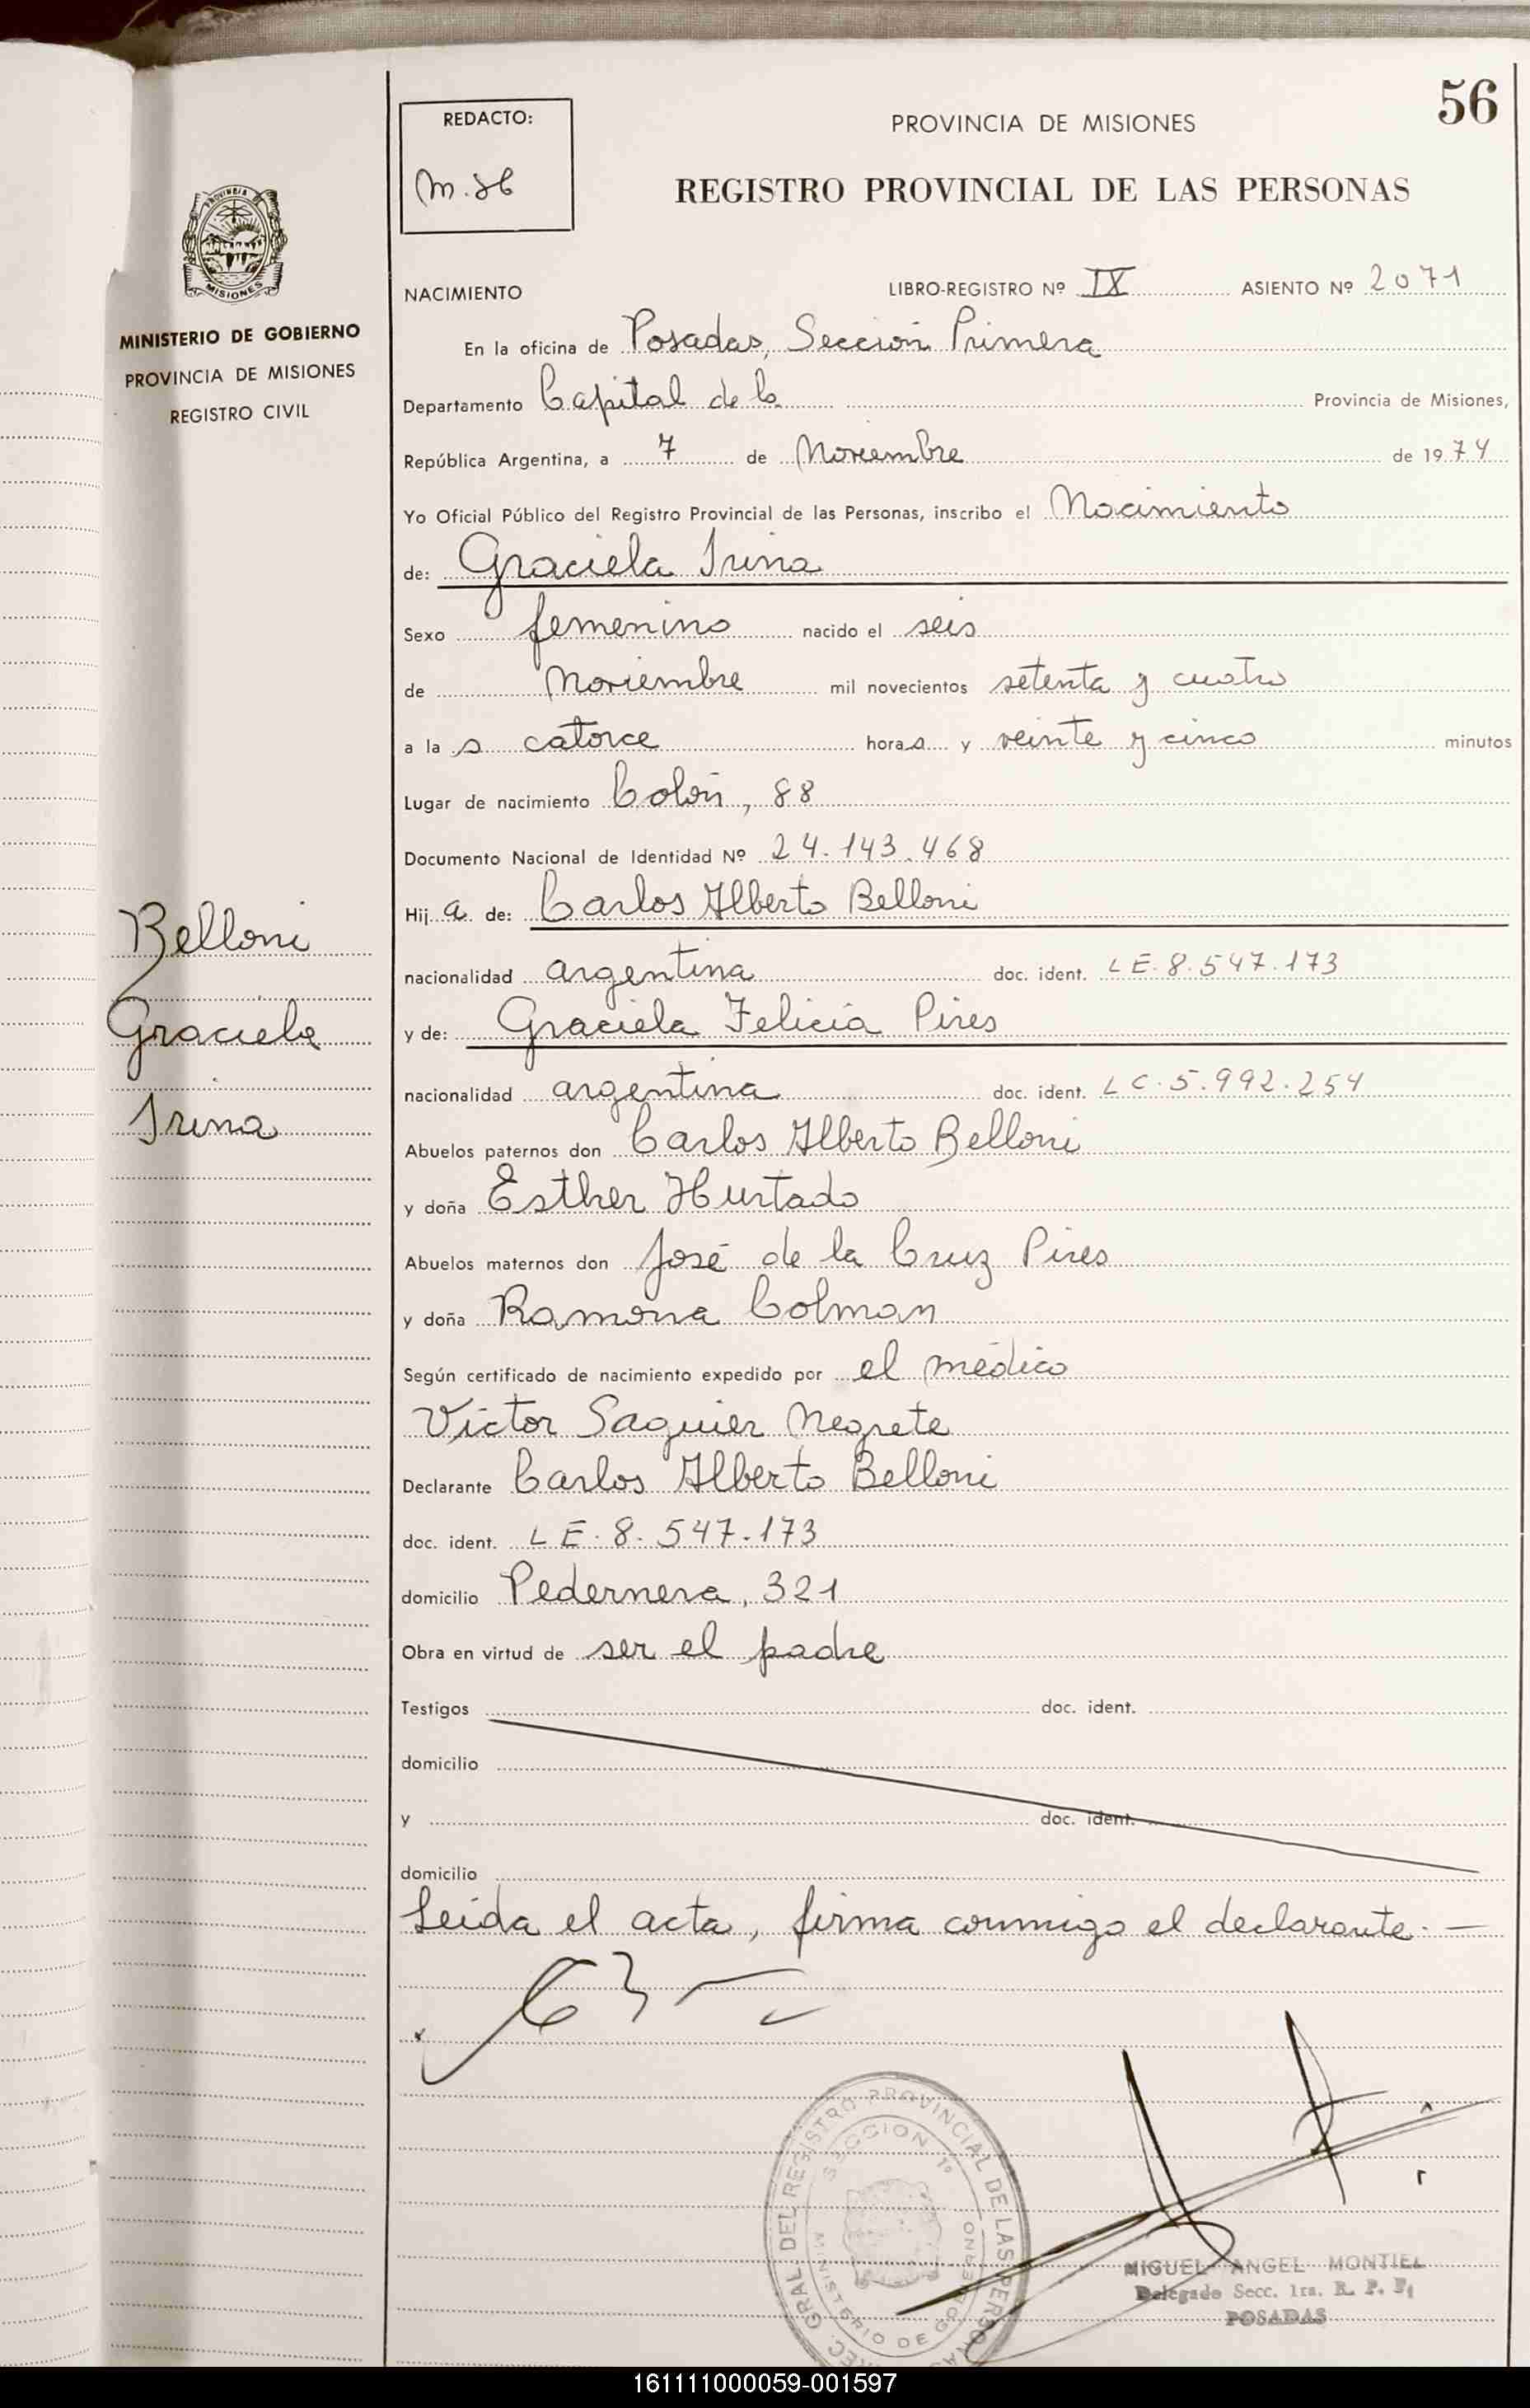 56
REDACTO:
PROVINCIA DE MISIONES
REGISTRO PROVINCIAL DE LAS PERSONAS
PROVINCIA
MISIONES
MINISTERIO DE GOBIERNO
PROVINCIA DE MISIONES
REGISTRO CIVIL
NACIMIENTO LIBRO-REGISTRO Nº IX ASIENTO Nº 2071
En la oficina de Posadas, Sección Primera
Departamento Capital de la Provincia de Misiones,
República Argentina, a 7 de Noviembre de 1974
Yo Oficial Público del Registro Provincial de las Personas, inscribo el Nacimiento
de: Graciela Irina
Sexo femenino nacido el seis
de Noviembre mil novecientos setenta y cuatro
a la s catorce horas y veinte y cinco minutos
Lugar de nacimiento Colón, 88
Documento Nacional de Identidad Nº 24.143.468
Hij a de: Carlos Alberto Belloni
nacionalidad argentina doc. ident. LE.8.547.173
y de: Graciela Felicia Pires
nacionalidad argentina doc. ident. LC.5.992.254
Belloni
Graciela
Irina
Abuelos paternos don Carlos Alberto Belloni
y doña Esther Hurtado
Abuelos maternos don José de la Cruz Pires
y doña Ramona Colman
Según certificado de nacimiento expedido por el médico
Víctor Saguier Negrete
Declarante Carlos Alberto Belloni
doc. ident. LE.8.547.173
domicilio Pedernera, 321
Obra en virtud de ser el padre
Testigos doc. ident.
domicilio
y doc. ident.
domicilio
Leída el acta, firma conmigo el declarante.—
GRAL. DEL REGISTRO PROVINCIAL DE LAS PERSONAS
SECCION 1º
MINISTERIO DE GOBIERNO
MIGUEL ANGEL MONTIEL
Delegado Secc. 1ra. R. P. P.
POSADAS
161111000059-001597